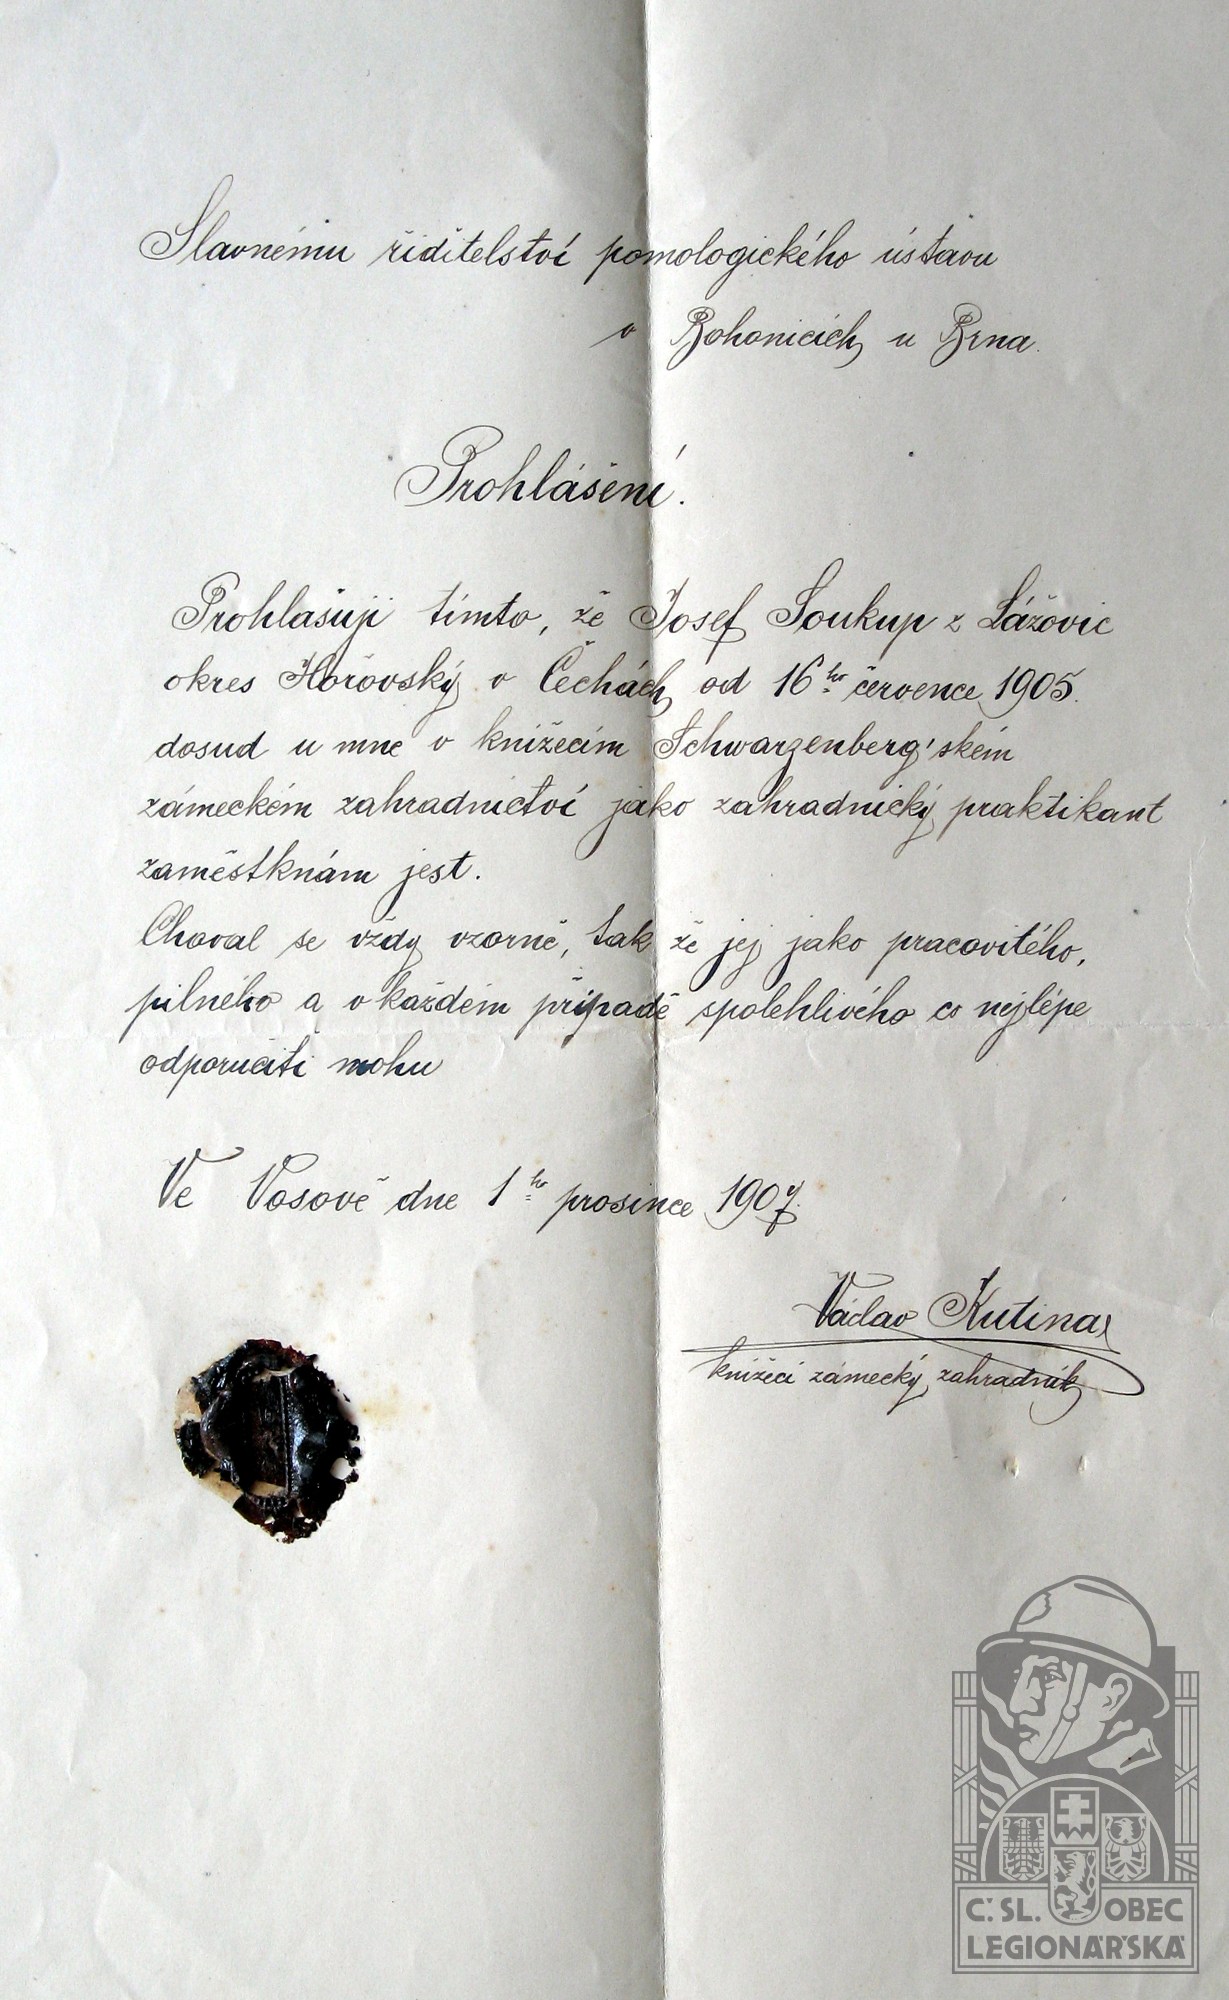 Slavnému řiditelství pomologického ústavu
v Bohonicích u Brna.
Prohlášení.
Prohlašuji tímto, že Josef Soukup z Lážovic
okres Hořovský v Čechách od 16ho července 1905.
dosud u mne v knížecím Schwarzenberg'ském
zámeckém zahradnictví jako zahradnický praktikant
zaměstknám jest.
Choval se vždy vzorně, tak že jej jako pracovitého,
pilného a v každém případě spolehlivého co nejlépe
odporučiti mohu
Ve Vosově dne 1ho prosince 1907.
Václav Kutina
knížecí zámecký zahradník
Č. SL. OBEC
LEGIONÁŘSKÁ